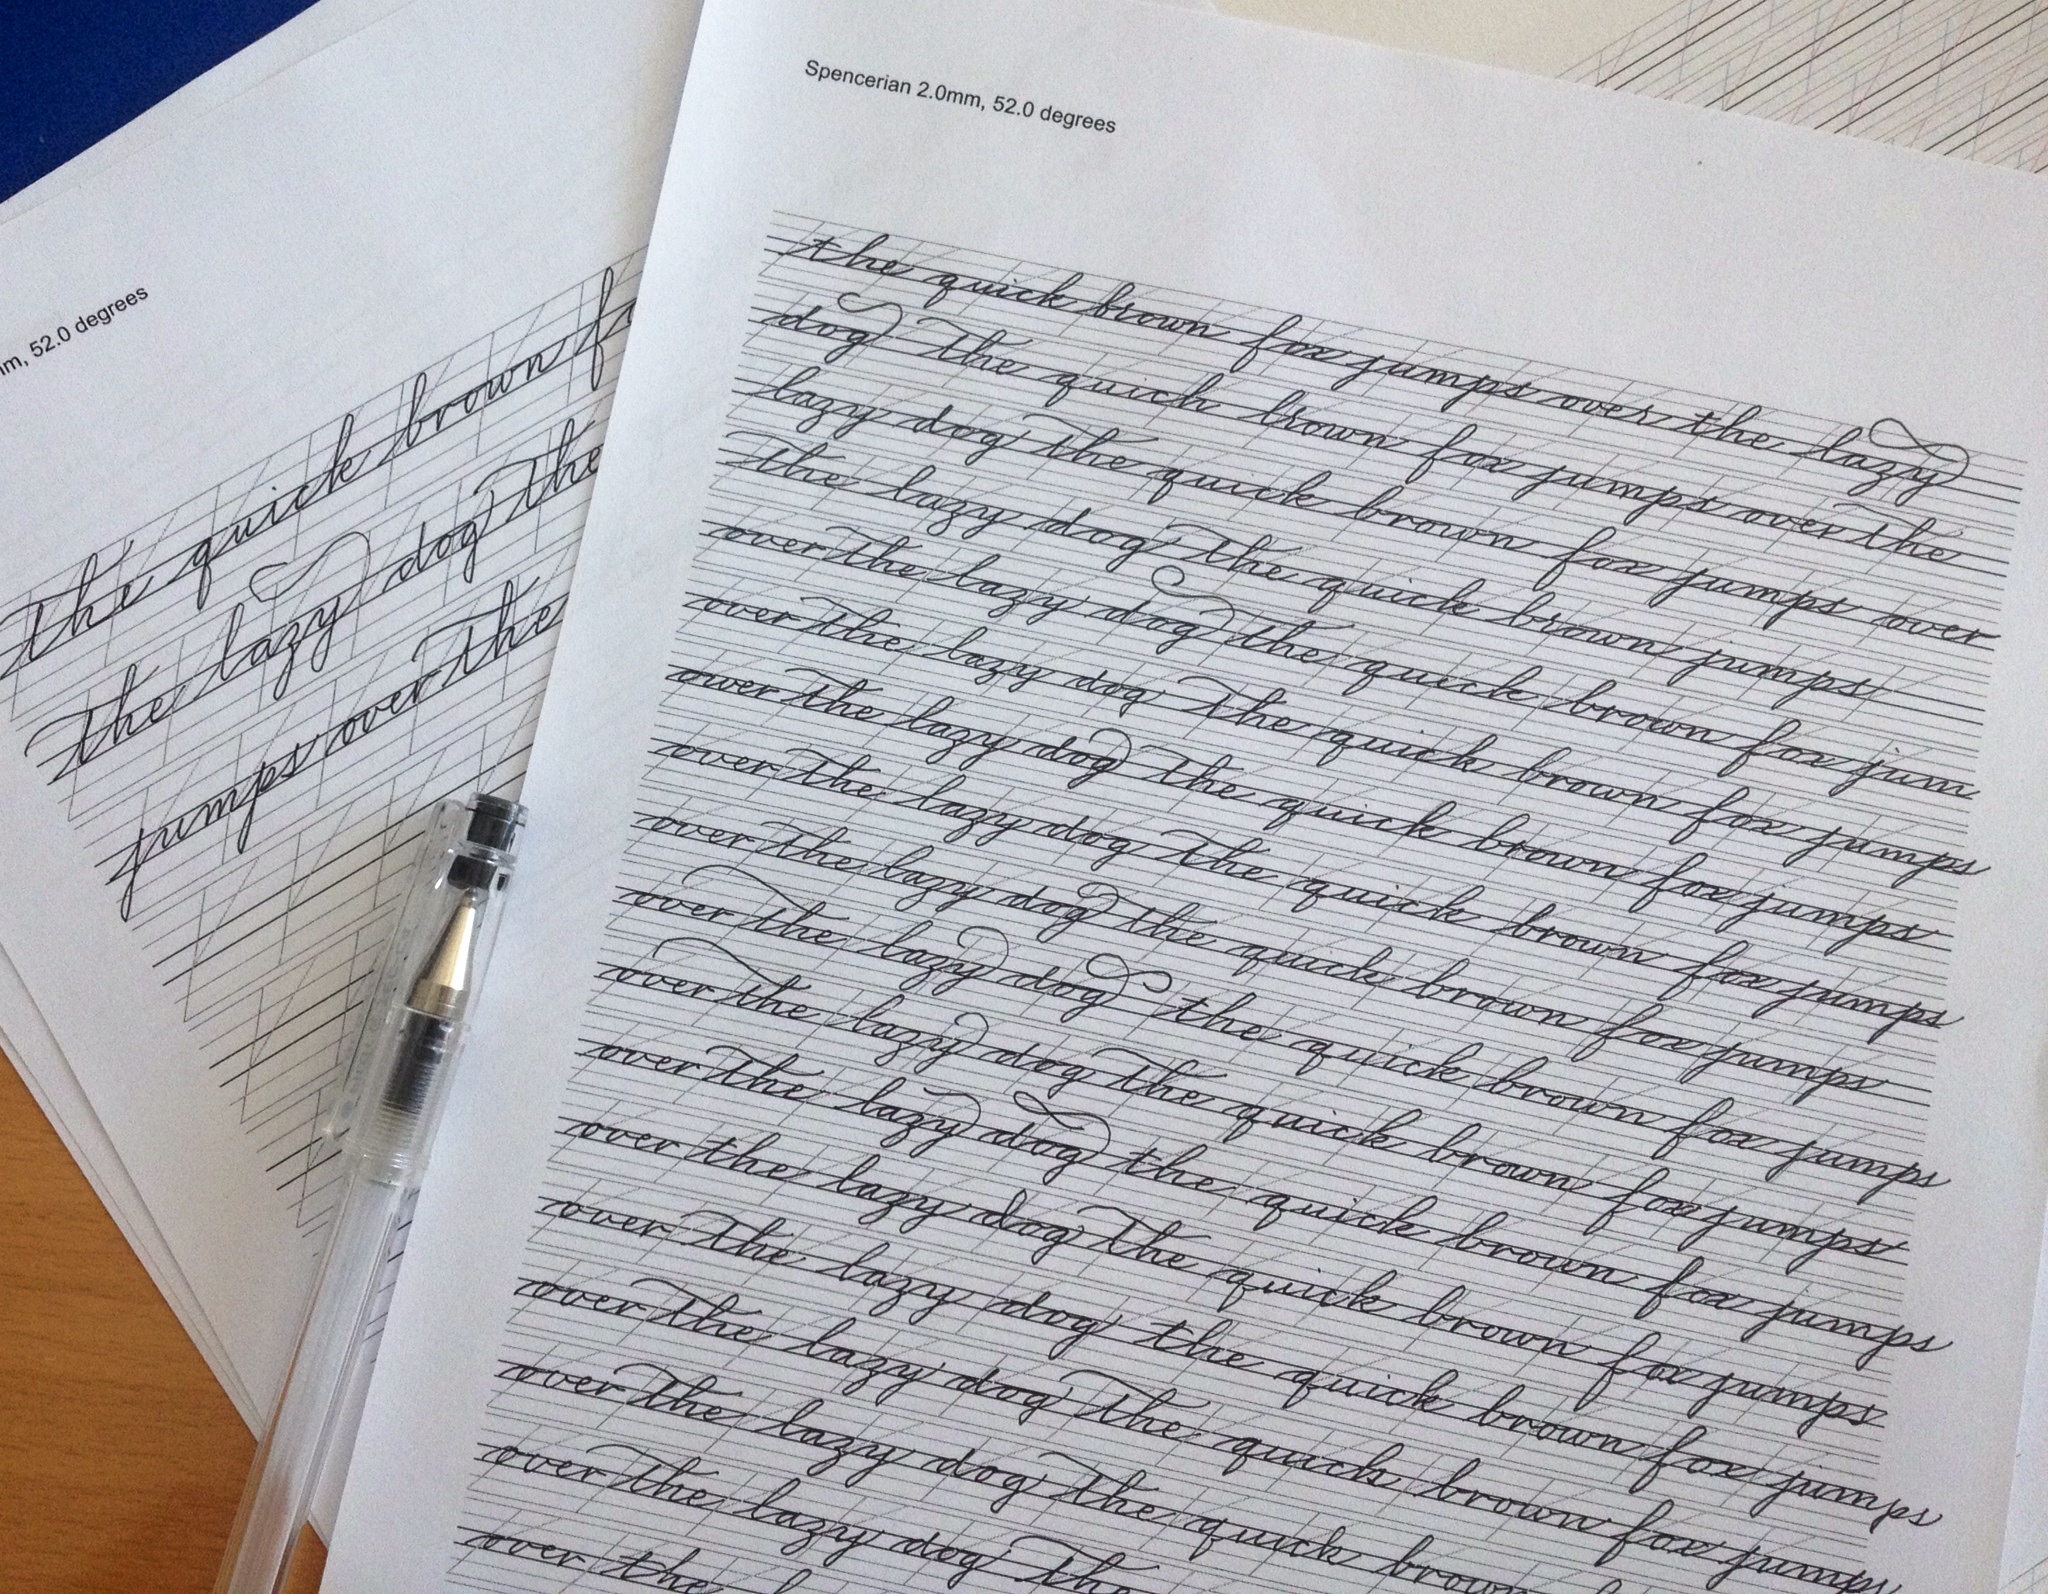 mm, 52.0 degrees
the quick brown fo
the lazy dog the
jumps over the
Spencerian 2.0mm, 52.0 degrees
the quick brown fox jumps over the lazy
dog the quick brown fox jumps over the
lazy dog the quick brown fox jumps over
the lazy dog the quick brown jumps
over the lazy dog the quick brown fox jum
over the lazy dog the quick brown fox jumps
over the lazy dog the quick brown fox jumps
over the lazy dog the quick brown fox jumps
over the lazy dog the quick brown fox jumps
over the lazy dog the quick brown fox jumps
over the lazy dog the quick brown fox jumps
over the lazy dog the quick brown fox jumps
over the lazy dog the quick brown fox jumps
over the lazy dog the quick brown fox jumps
over the lazy dog the quick brown fox jumps
over the lazy dog the quick brown
over the lazy dog the
over the